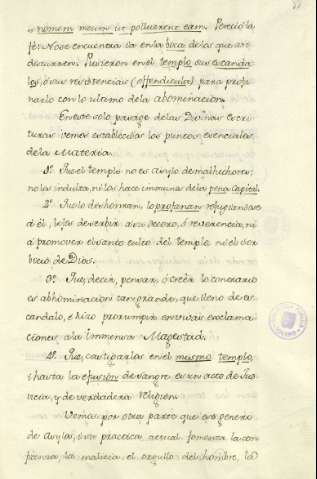 nomen meum ut polluerent eam. Pereció la
fé: No se encuentra ya en la boca de los que se
Pusieron en el templo sus escanda-
los, ó sus resistencias (offendicula) para profa-
narlo con lo ultimo de la abominacion.
En este solo pasage de las Divinas Escri-
turas vemos establecidos los puntos esenciales
de la Materia.
1º. Que el templo no es asylo de malhechores:
no los indulta, ni los hace inmunes de la pena Capital.
2º. Que lo deshonran, lo profanan refugiandose
á él, lejos de servir á su decoro, ó reverencia, ni
á promover el santo culto del templo ni el ser-
vicio de Dios.
3º. Que, decir, pensar, ó creér lo contrario
es abhominacion tan grande, que lleno de es-
candalo, è hizo prorrumpir en tristes exclama-
ciones, a la Inmensa Magestad.
4º. Que, castigarlos en el mismo templo,
i hasta la efusion de sangre es un acto de Jus-
ticia, y de verdadera religion.
Vemos por otra parte que ese genero
de asylos, ó su practica actual fomenta la con-
fianza, la malicia, el orgullo del hombre, la